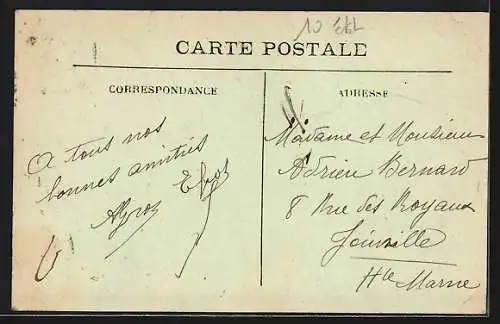 CARTE POSTALE
CORRESPONDANCE
A tous nos
bonnes amitiés
ADRESSE
Madame et Monsieur
Adrien Bernard
8 Rue des Royaux
Joinville
Hte Marne